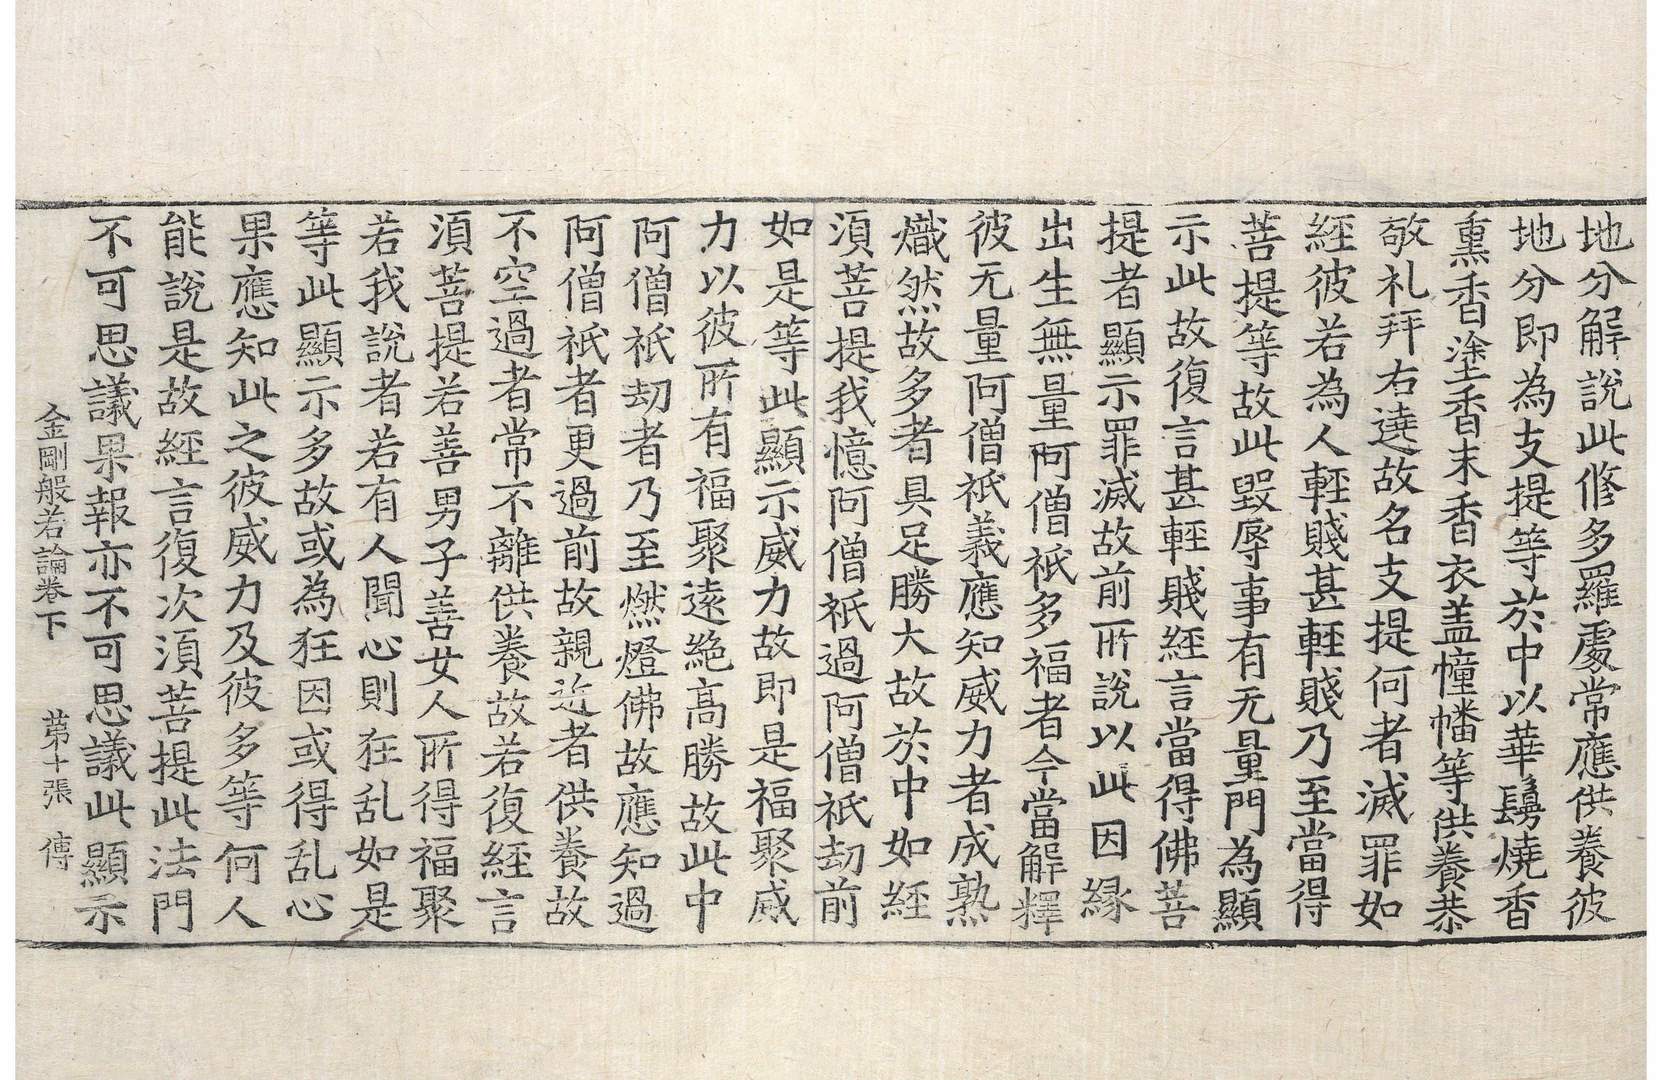 地分解說此修多羅處常應供養彼
地分即為支提等於中以華鬘燒香
熏香塗香末香衣盖幢幡等供養恭
敬礼拜右遶故名支提何者滅罪如
經彼若為人輕賤甚輕賤乃至當得
菩提等故此毀辱事有无量門為顯
示此故復言甚輕賤經言當得佛菩
提者顯示罪滅故前所說以此因緣
出生無量阿僧祇多福者今當解釋
彼无量阿僧祇義應知威力者成熟
熾然故多者具足勝大故於中如經
須菩提我憶阿僧祇過阿僧祇劫前
如是等此顯示威力故即是福聚威
力以彼所有福聚遠絕高勝故此中
阿僧祇劫者乃至燃燈佛故應知過
阿僧祇者更過前故親近者供養故
不空過者常不離供養故若復經言
須菩提若善男子善女人所得福聚
若我說者若有人聞心則狂乱如是
等此顯示多故或為狂因或得乱心
果應知此之彼威力及彼多等何人
能說是故經言復次須菩提此法門
不可思議果報亦不可思議此顯示
金剛般若論卷下 第十張 傳